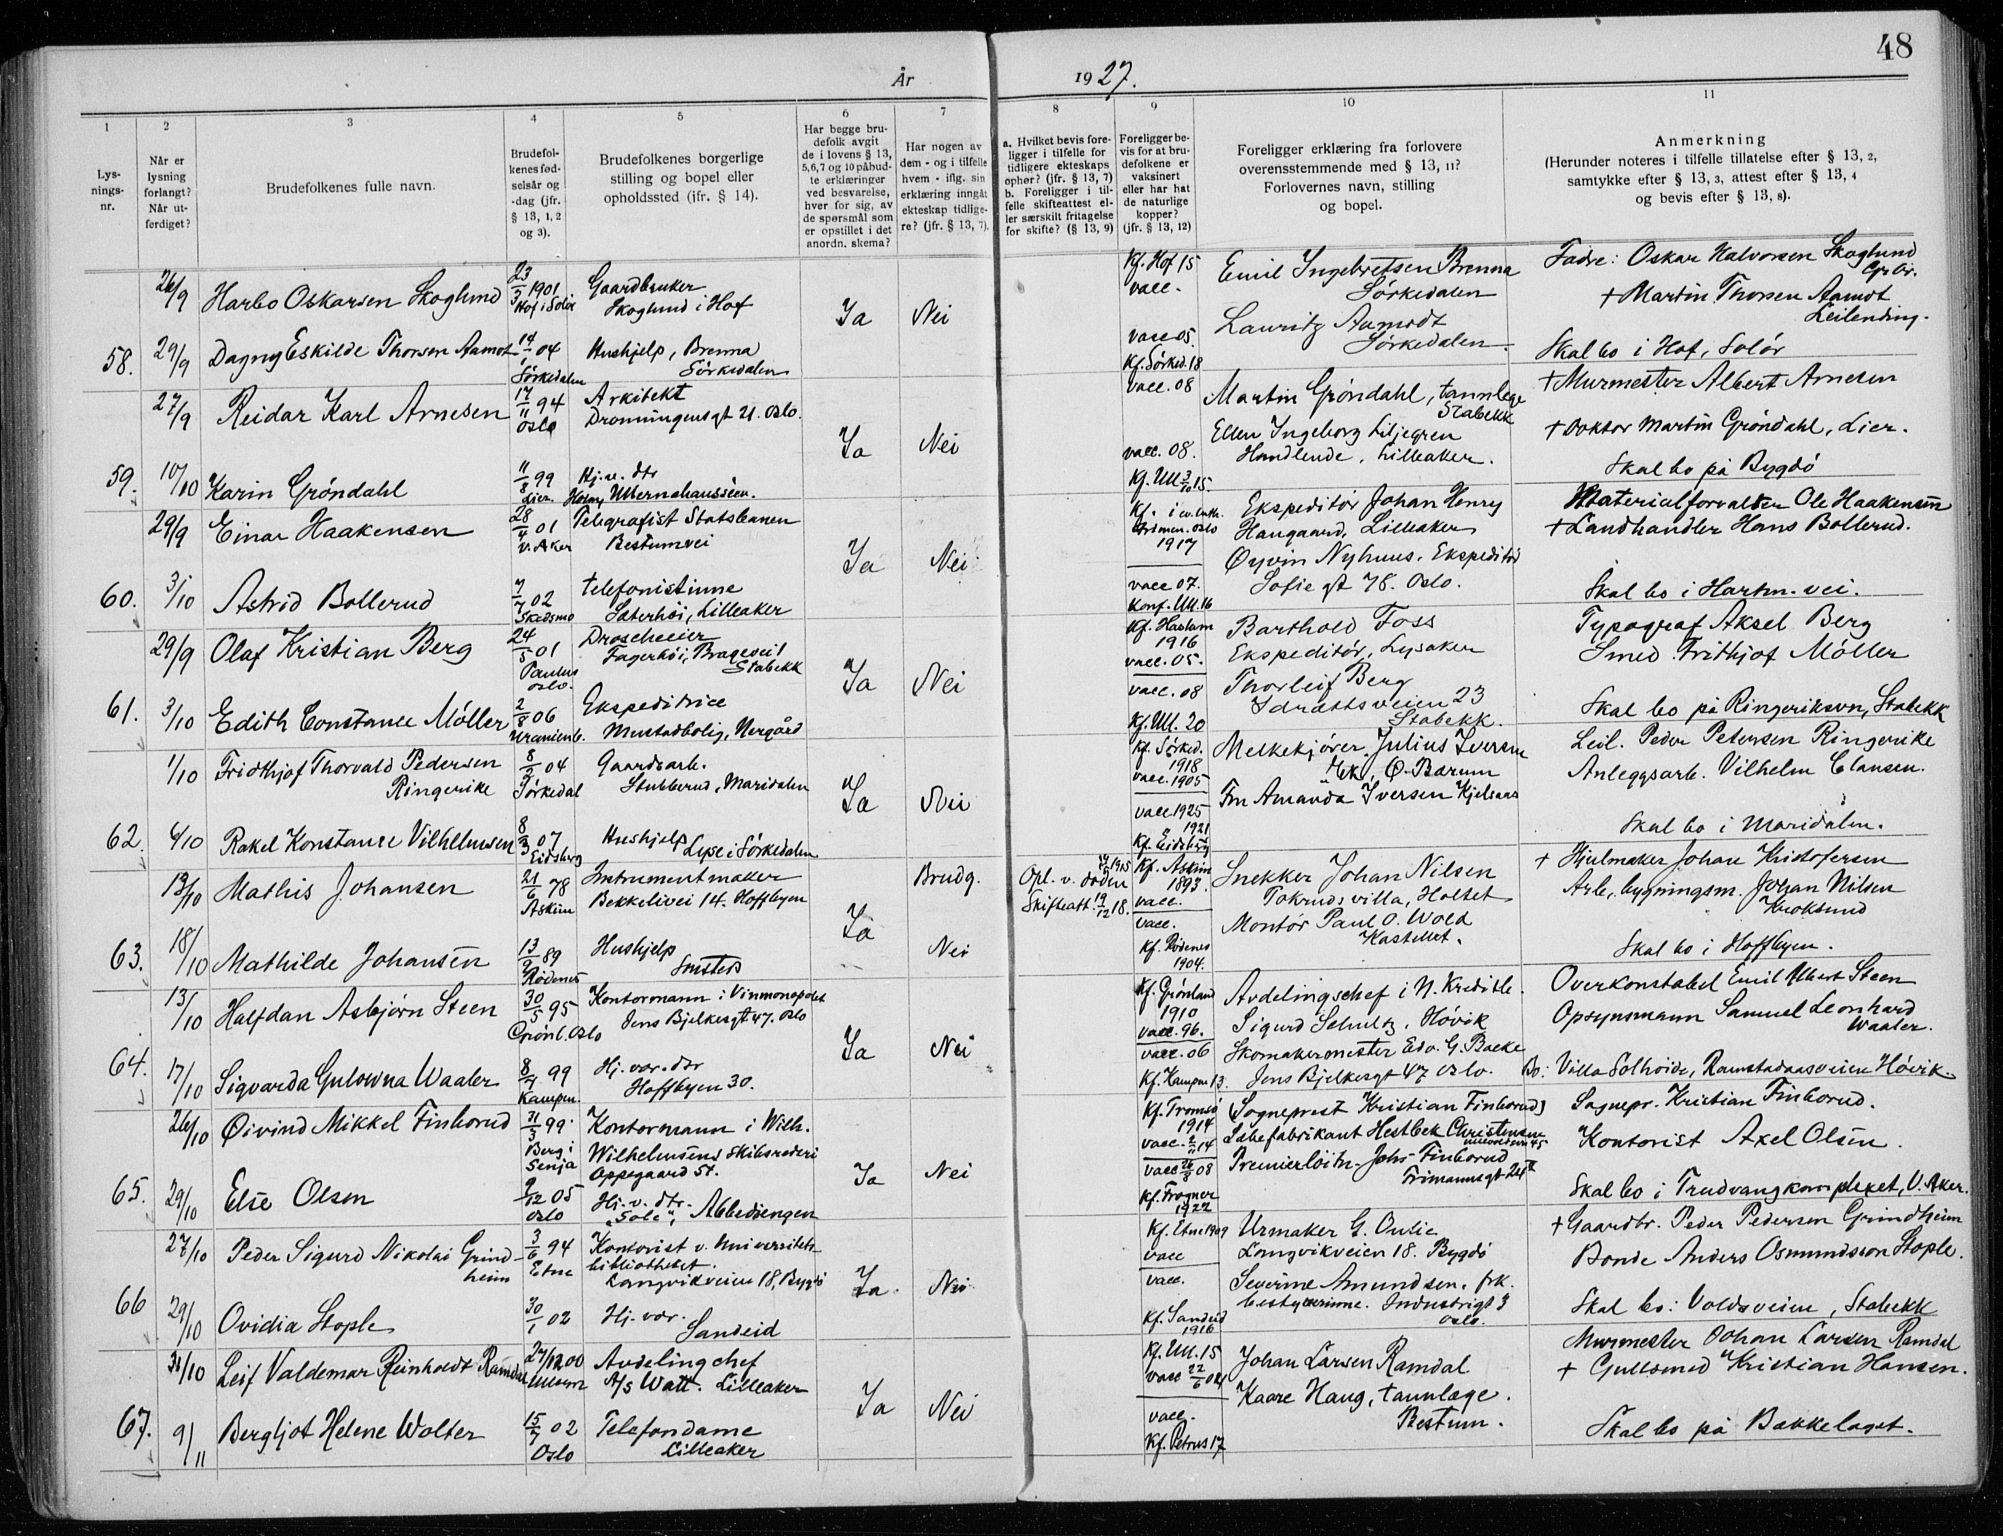 48
År 1927.
1 2 3 4 5 6 7 8 9 10 11
Lys-
nings-
nr.
Når er
lysning
forlangt?
Når ut-
ferdiget?
Brudefolkenes fulle navn.
Brudefol-
kenes fød-
selsår og
-dag (jfr.
§ 13, 1, 2
og 3).
Brudefolkenes borgerlige
stilling og bopel eller
opholdssted (jfr. § 14).
Har begge bru-
defolk avgit
de i lovens § 13,
5,6,7 og 10 påbud-
te erklæringer
ved besvarelse,
hver for sig, av
de spørsmål som
er opstillet i det
anordn. skema?
Har nogen av
dem - og i tilfelle
hvem - iflg. sin
erklæring inngått
ekteskap tidlige-
re? (jfr. § 13, 7).
a. Hvilket bevis fore-
ligger i tilfelle for
tidligere ekteskaps
ophør? (jfr. § 13, 7)
b. Foreligger i til-
felle skifteattest el-
ler særskilt fritagelse
for skifte? (§ 13, 9)
Foreligger be-
vis for at bru-
defolkene er
vaksinert
eller har hat
de naturlige
kopper?
(jfr. § 13, 12)
Foreligger erklæring fra forlovere
overensstemmende med § 13, 11?
Forlovernes navn, stilling
og bopel.
Anmerkning
(Herunder noteres i tilfelle tillatelse efter § 13, 2,
samtykke efter § 13, 3, attest efter § 13, 4
og bevis efter § 13, 8).
58.
26/9 Harbo Oskarsen Skoglund
23/3 1901
Hof i Solør
Gaardbruker
Skoglund i Hof
Ja Nei
Kf. Hof 15
vacc.
Emil Ingebretsen Brenna
Sørkedalen
Fadre: Oskar Halvorsen Skoglund
Grbr.
† Martin Thorsen Aamot
Leilending.
29/9 Dagny Eskilde Thorsen Aamot
04
Sørkedalen
Hushjelp, Brenna
Sørkedalen
vacc 05.
Kf. Sørked. 18
Lauritz Aamodt
Sørkedalen.
Skal bo i Hof, Solør
59.
27/9 Reidar Karl Arnesen
17/11 94
Oslo
Arkitekt
Dronningensgt 21. Oslo.
Ja Nei
vacc. 08
Martin Grøndahl, tannlege
Stabekk
† Murmester Albert Arnesen
† Doktor Martin Grøndahl, Lier.
10/10 Karin Grøndahl
11/8 99
Lier.
Hj.v. dtr
Ullernchausséen.
vacc. 08.
Kf. Ull 3/10 15.
Ellen Ingeborg Liljegren
Handlende, Lilleaker.
Skal bo på Bygdø
60.
29/9 Einar Haakensen
28/4 01
V. Aker
Telegrafist Statsbanen
Bestumvei
Ja Nei
Kf. i
Oslo
1917
Ekspeditør Johan Henry
Haugaard, Lilleaker
Materialforvalter Ole Haakensen
† Landhandler Hans Bollerud.
3/10 Astrid Bollerud
7/7 02
Skedsmo
Telefonistinne
Sæterhøi, Lilleaker
vacc 07.
Konf. Ull. 16
Øyvin Nyhuus. Ekspeditør
Sofie gt 78. Oslo.
Skal bo i Harbn. vei.
61.
29/9 Olaf Kristian Berg
24/5 01
Paulus
Oslo.
Droscheeier
Fagerhøi, Brageveil
Stabekk
Ja Nei
Kf. Haslum
1916
vacc. 05.
Barthold Foss
Ekspeditør, Lysaker
Typograf Aksel Berg
Smed Frithjof Møller
3/10 Edith Constance Møller
2/8 06
Uranienb.
Ekspeditrice
Mustadbolig, Nergård
vacc. 08
Kf. Ull. 20
Thorleif Berg
Idrættsveien 23
Stabekk.
Skal bo på Ringeriksvn, Stabekk
62.
1/10 Fridthjof Thorvald Pedersen
Ringerike
8/2 04
Sørkedal
Gaardsarb.
Stubberud, Maridalen
Ja Nei
Kf. Sørked.
1918
vacc. 1905
Melkekjører Julius Iversen
Ø. Bærum
Leil. Peder Petersen Ringerike
Anleggsarb. Vilhelm Clausen.
4/10 Rakel Konstance Vilhelmsen
8/3 07
Eidsberg
Hushjelp
Lyse i Sørkedalen
vacc 1925
1921
Kf. Eidsberg
Fru Amanda Iversen Kjelsaas
Skal bo i Maridalen.
63.
13/10 Mathis Johansen
21/6 78
Askim
Instrumentmaker
Bekkelivei 14. Hoffbyen
Ja Brudg.
Opl. v. døden
1915
Skifteatt. 19/12 18.
Kf. Askim
1893.
vacc.
Snekker Johan Nilsen
Tokrudsvilla, Holtet
† Hjulmaker Johan Kristofersen
Arb., bygningsm. Johan Nilsen
Kroksund
18/10 Mathilde Johansen
13/9 89
Rødenes
Hushjelp
Smsteds
Nei
vacc.
Kf. Rødenes
1904.
Montør Paul O. Wold
Kastellet.
Skal bo i Hoffbyen.
64.
13/10 Halfdan Asbjørn Steen
30/5 95
Grønl. Oslo
Kontormann i Vinmonopolet
Jens Bjelkesgt 47. Oslo
Ja Nei
Kf. Grønland
1910
vacc. 96.
Avdelingschef i N. Kreditb.
Sigurd Schultz, Høvik
Overkonstabel Emil Albert Steen
Opsynsmann Samuel Leonhard
Waaler.
17/10 Sigvarda Gulowna Waaler
8/7 99
Kampen.
Hj. vær. dtr
Hoffbyen 30.
vacc. 06
Kf. Kampen 13.
Skomakermester Edv. G. Bakke
Jens Bjelkesgt 47 Oslo.
Bo: Villa Solhøide, Ramstadaasveien Høvik.
65.
26/10 Øivind Mikkel Finborud
31/3 99
Berg i
Senja
Kontormann i Wilh.
Wilhelmsens Skibsrederi
Oppegaard St.
Ja Nei
Kf. Tromsø
1914
vacc. 14
(Sogneprest Kristian Finborud)
Læbefabrikant Hestbek Christensen
Sognepr. Kristian Finborud.
Kontorist Axel Olsen.
29/10 Else Olsen
9/12 05
Oslo
Hj. v. dtr.
"Sole", Abbediengen
vacc 08
Kf. Frogner
1922
Premierløitn. Johs Finborud
Frimannsgt 24
Skal bo i Trudvangkomplexet, V. Aker.
66
27/10 Peder Sigurd Nikolai Grind-
heim
3/6 94
Etne
Kontorist v. Universitets-
bibliotheket.
Langvikveien 18, Bygdø
Ja. Nei
Kf. Etne 1909
vacc
Urmaker G. Onsie
Langvikveien 18. Bygdø
† Gaardbr. Peder Pedersen Grindheim
Bonde Anders Osmundsson Stople.
29/10 Ovidia Stople
30/1 02
Hj. vær.
Sandeid
vacc.
Kf. Sandeid
1916
Severine Amundsen. frk.
bestyrerinne. Industrigt 3
Oslo.
Skal bo: Voldsveien, Stabekk
67.
31/10 Leif Valdemar Reinholdt Ramdal
27/12 00
Ullern
Avdelingchef
A/S Watt. Lilleaker
Ja Nei
Kf. Ull. 15
vacc 22/6 04
Johan Larsen Ramdal
Murmester Johan Larsen Ramdal
† Gullsmed Kristian Hansen.
9/11 Bergljot Helene Wolter
15/7 02
Oslo
Telefondame
Lilleaker
vacc.
Kf. Petrus 17
Kaare Haug, tannlæge.
Bestum.
Skal bo på Bækkelaget.